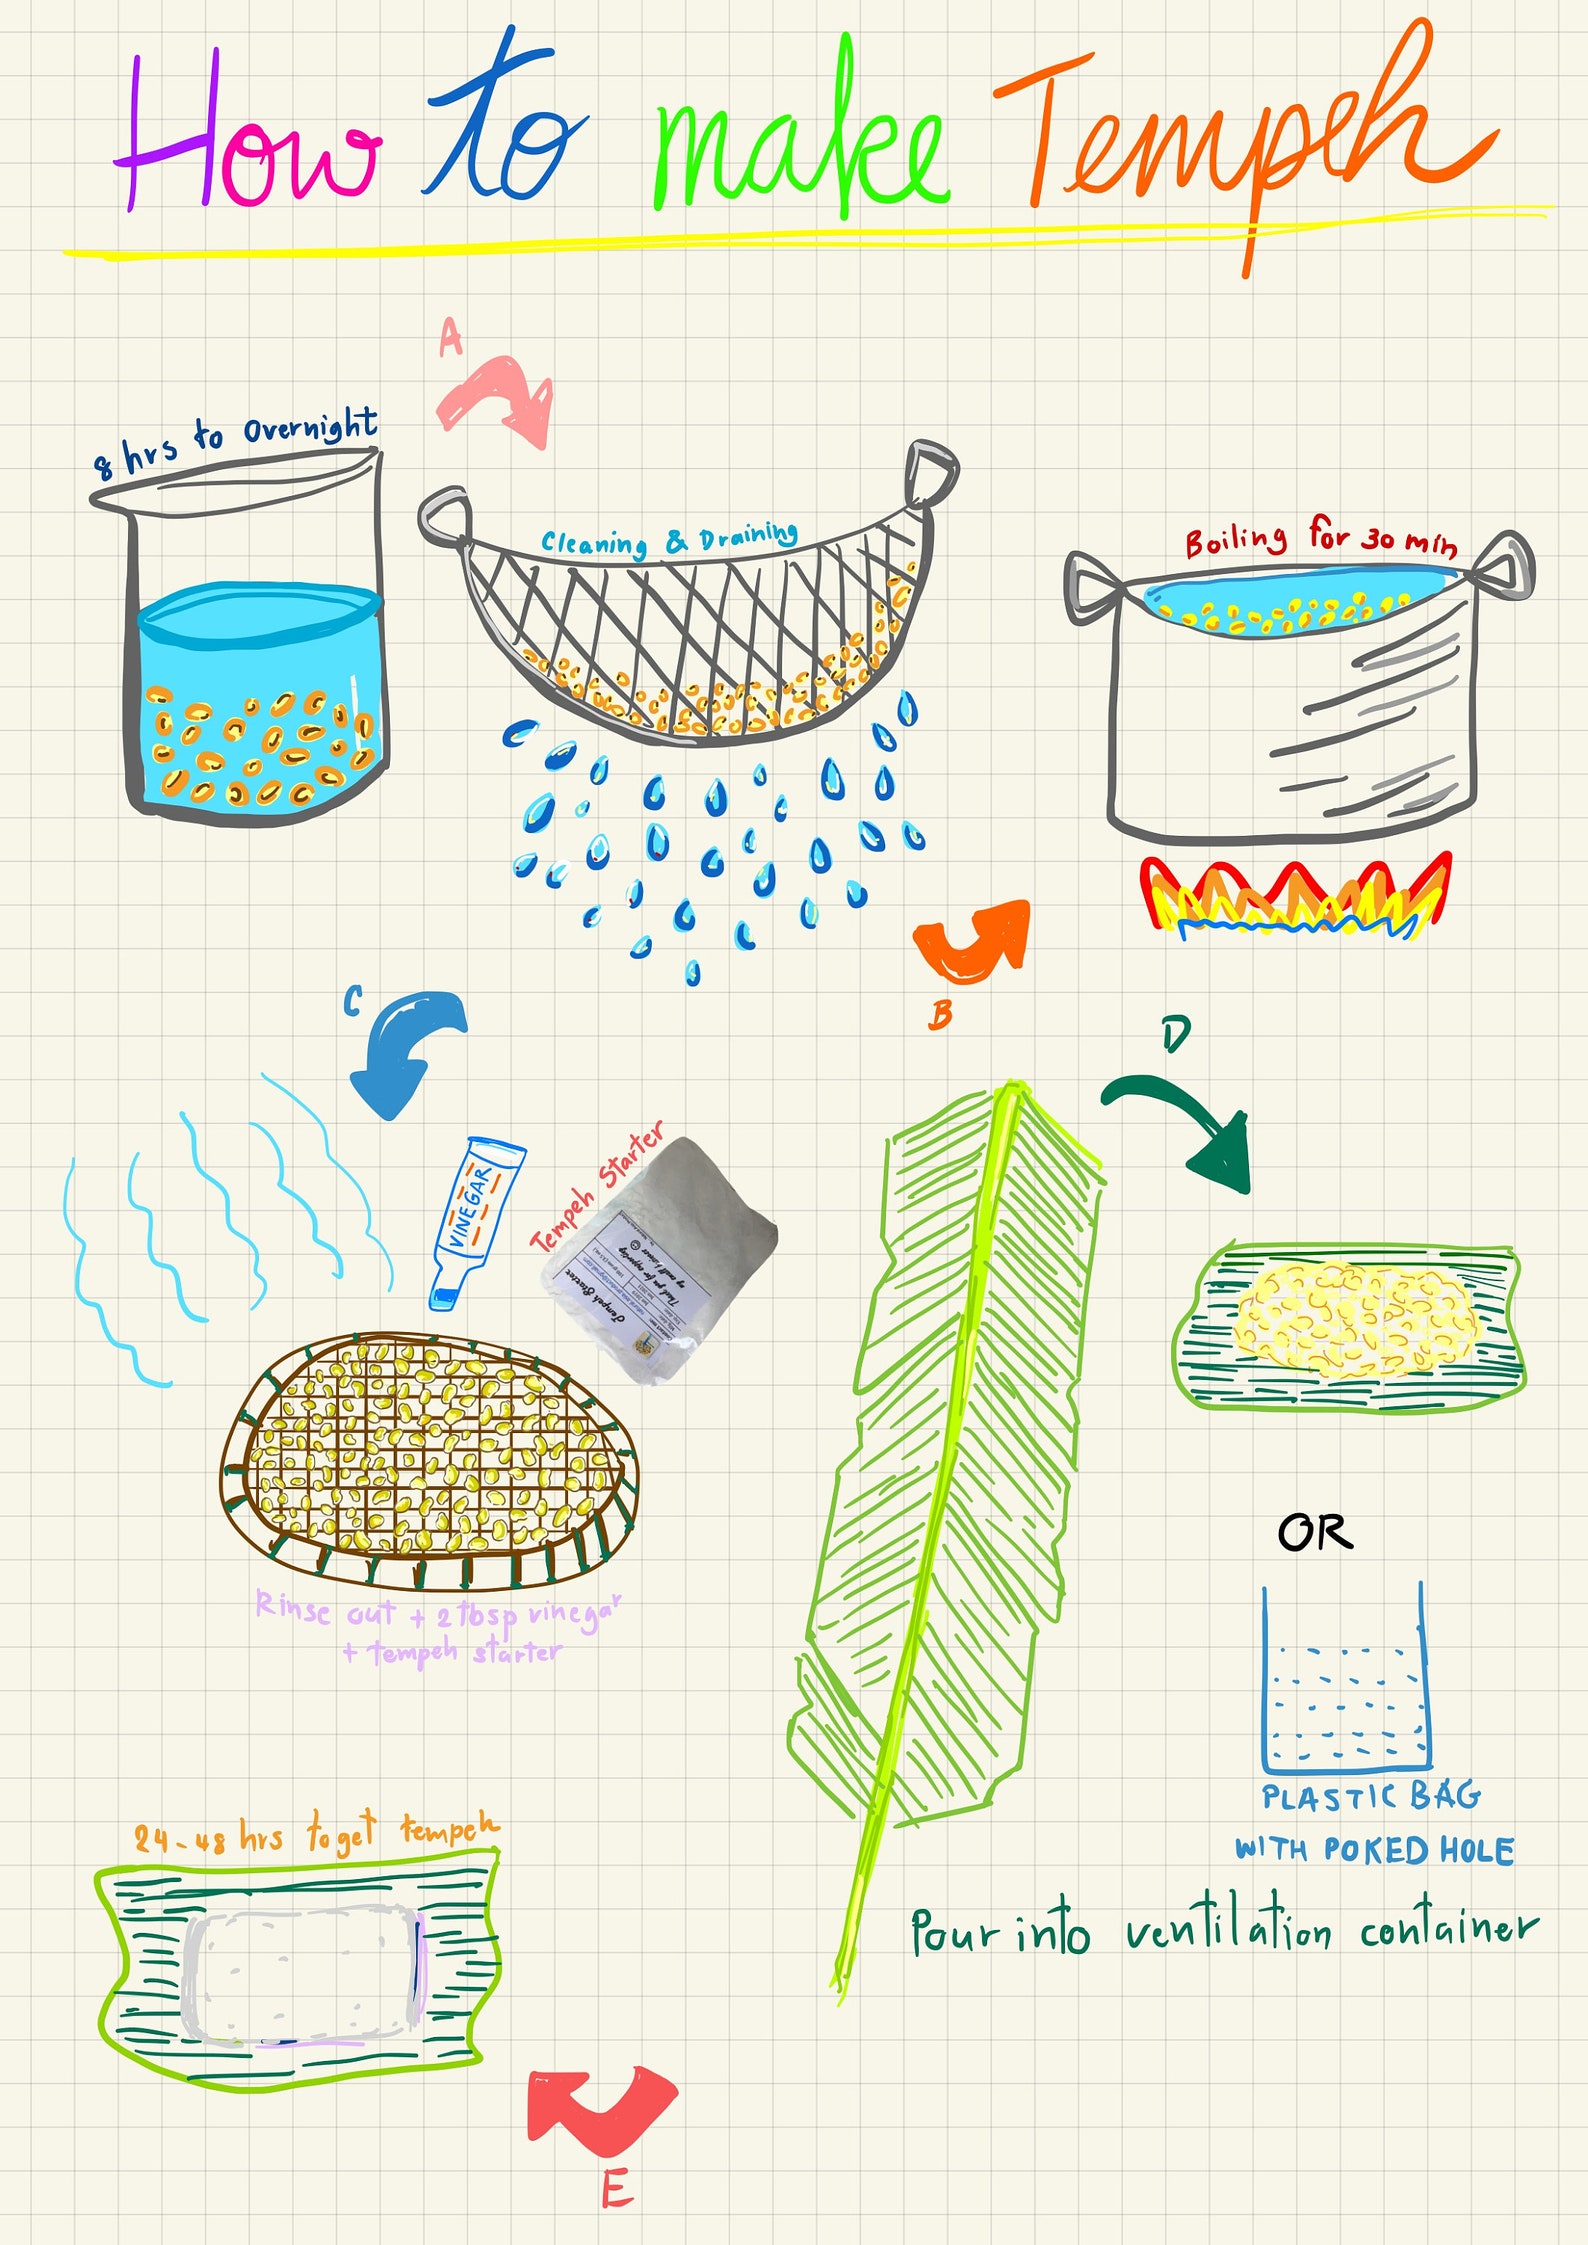 How to make Tempeh
A
8 hrs to Overnight
Cleaning & Draining
Boiling for 30 min
B
C
D
VINEGAR
Tempeh Starter
Tempeh Starter
Thank you for supporting
my small business
Rinse out + 2 tbsp vinegar
+ tempeh starter
OR
PLASTIC BAG
WITH POKED HOLE
Pour into ventilation container
24-48 hrs to get tempeh
E